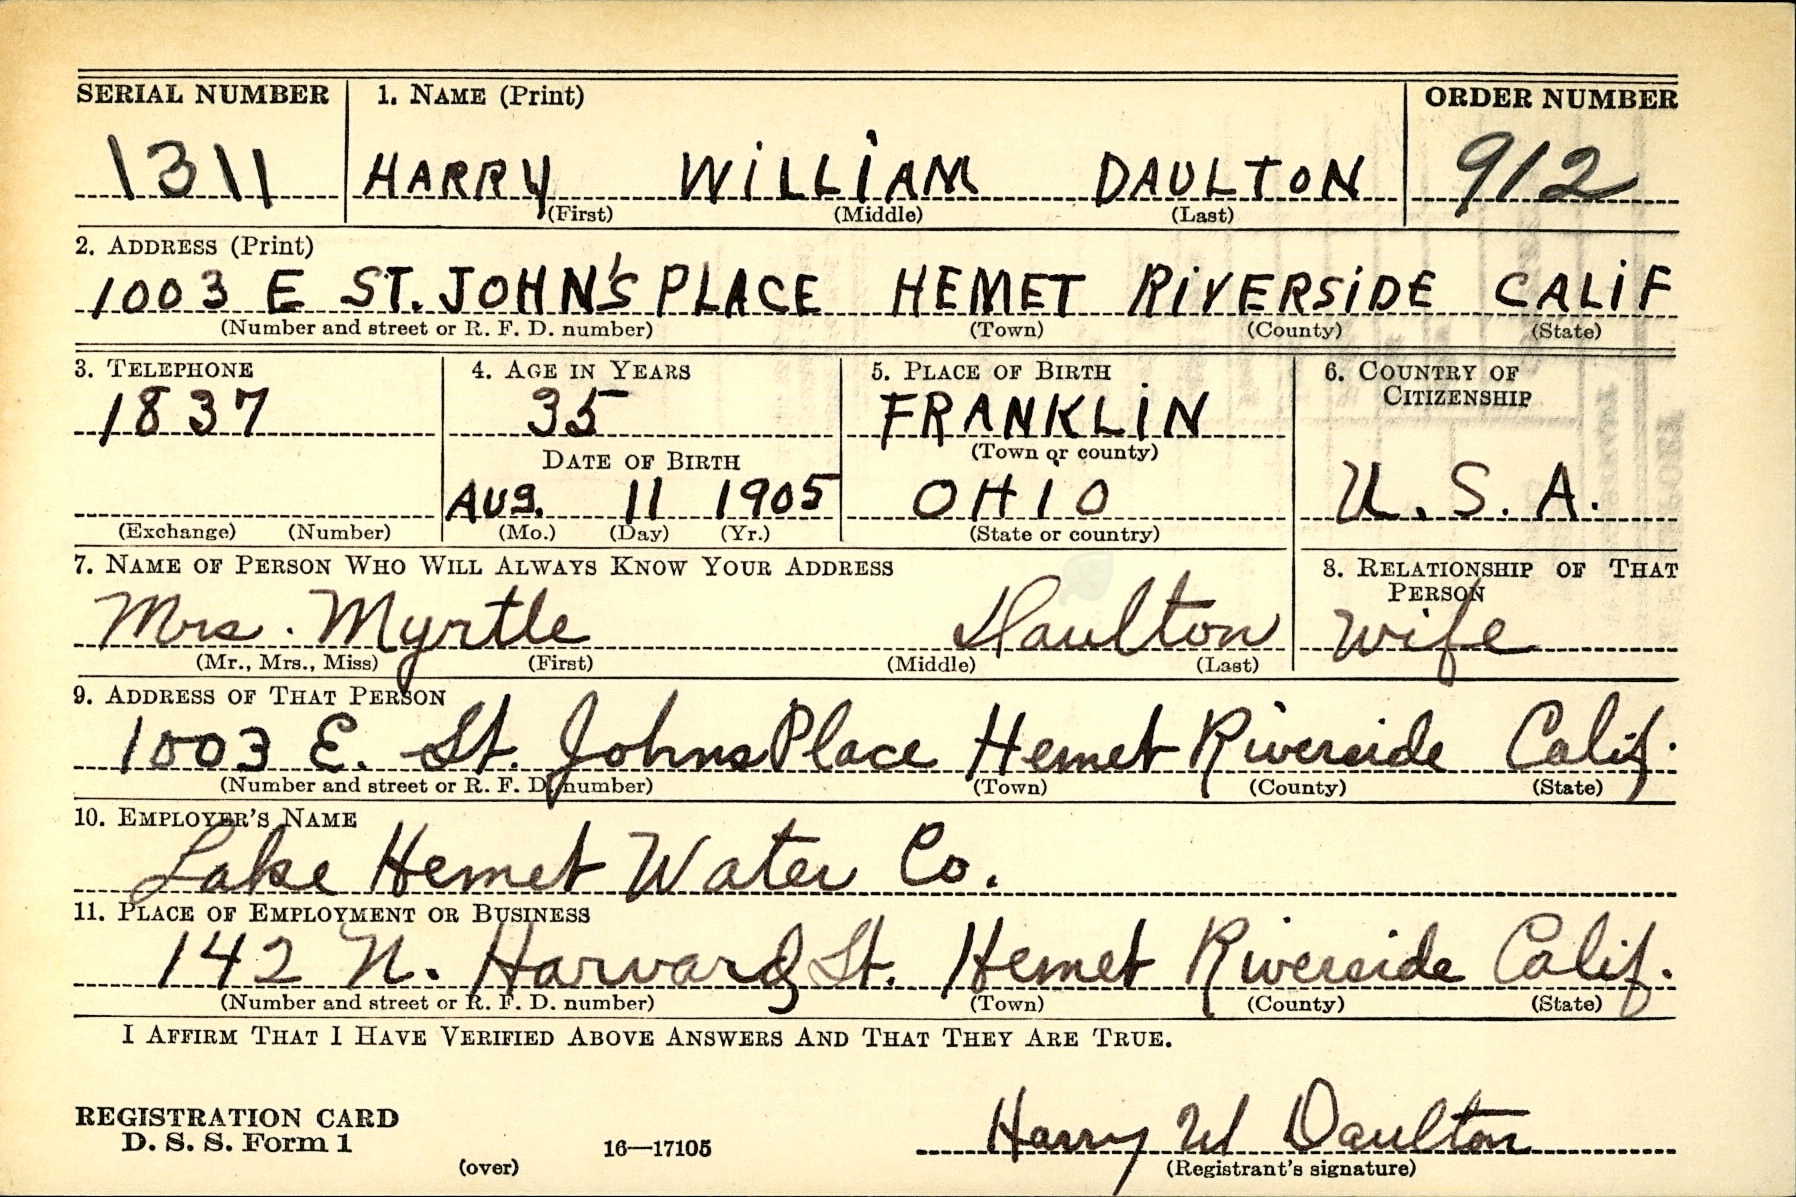 SERIAL NUMBER 1. NAME (Print) ORDER NUMBER
1311 HARRY WiLLiAM DAULTON 912
(First) (Middle) (Last)
2. ADDRESS (Print)
1003 E ST. JOHN'S PLACE HEMET RiVERSiDE CALiF
(Number and street or R. F. D. number) (Town) (County) (State)
3. TELEPHONE 4. AGE IN YEARS 5. PLACE OF BIRTH 6. COUNTRY OF CITIZENSHIP
1837 35 FRANKLiN
(Town or county)
DATE OF BIRTH
AUG. 11 1905 OHiO U.S.A.
(Exchange) (Number) (Mo.) (Day) (Yr.) (State or country)
7. NAME OF PERSON WHO WILL ALWAYS KNOW YOUR ADDRESS 8. RELATIONSHIP OF THAT PERSON
Mrs. Myrtle Daulton Wife
(Mr., Mrs., Miss) (First) (Middle) (Last)
9. ADDRESS OF THAT PERSON
1003 E. St. Johns Place Hemet Riverside Calif.
(Number and street or R. F. D. number) (Town) (County) (State)
10. EMPLOYER'S NAME
Lake Hemet Water Co.
11. PLACE OF EMPLOYMENT OR BUSINESS
142 N. Harvard St. Hemet Riverside Calif.
(Number and street or R. F. D. number) (Town) (County) (State)
I AFFIRM THAT I HAVE VERIFIED ABOVE ANSWERS AND THAT THEY ARE TRUE.
REGISTRATION CARD
D. S. S. Form 1 16—17105 Harry W Daulton
(over) (Registrant's signature)